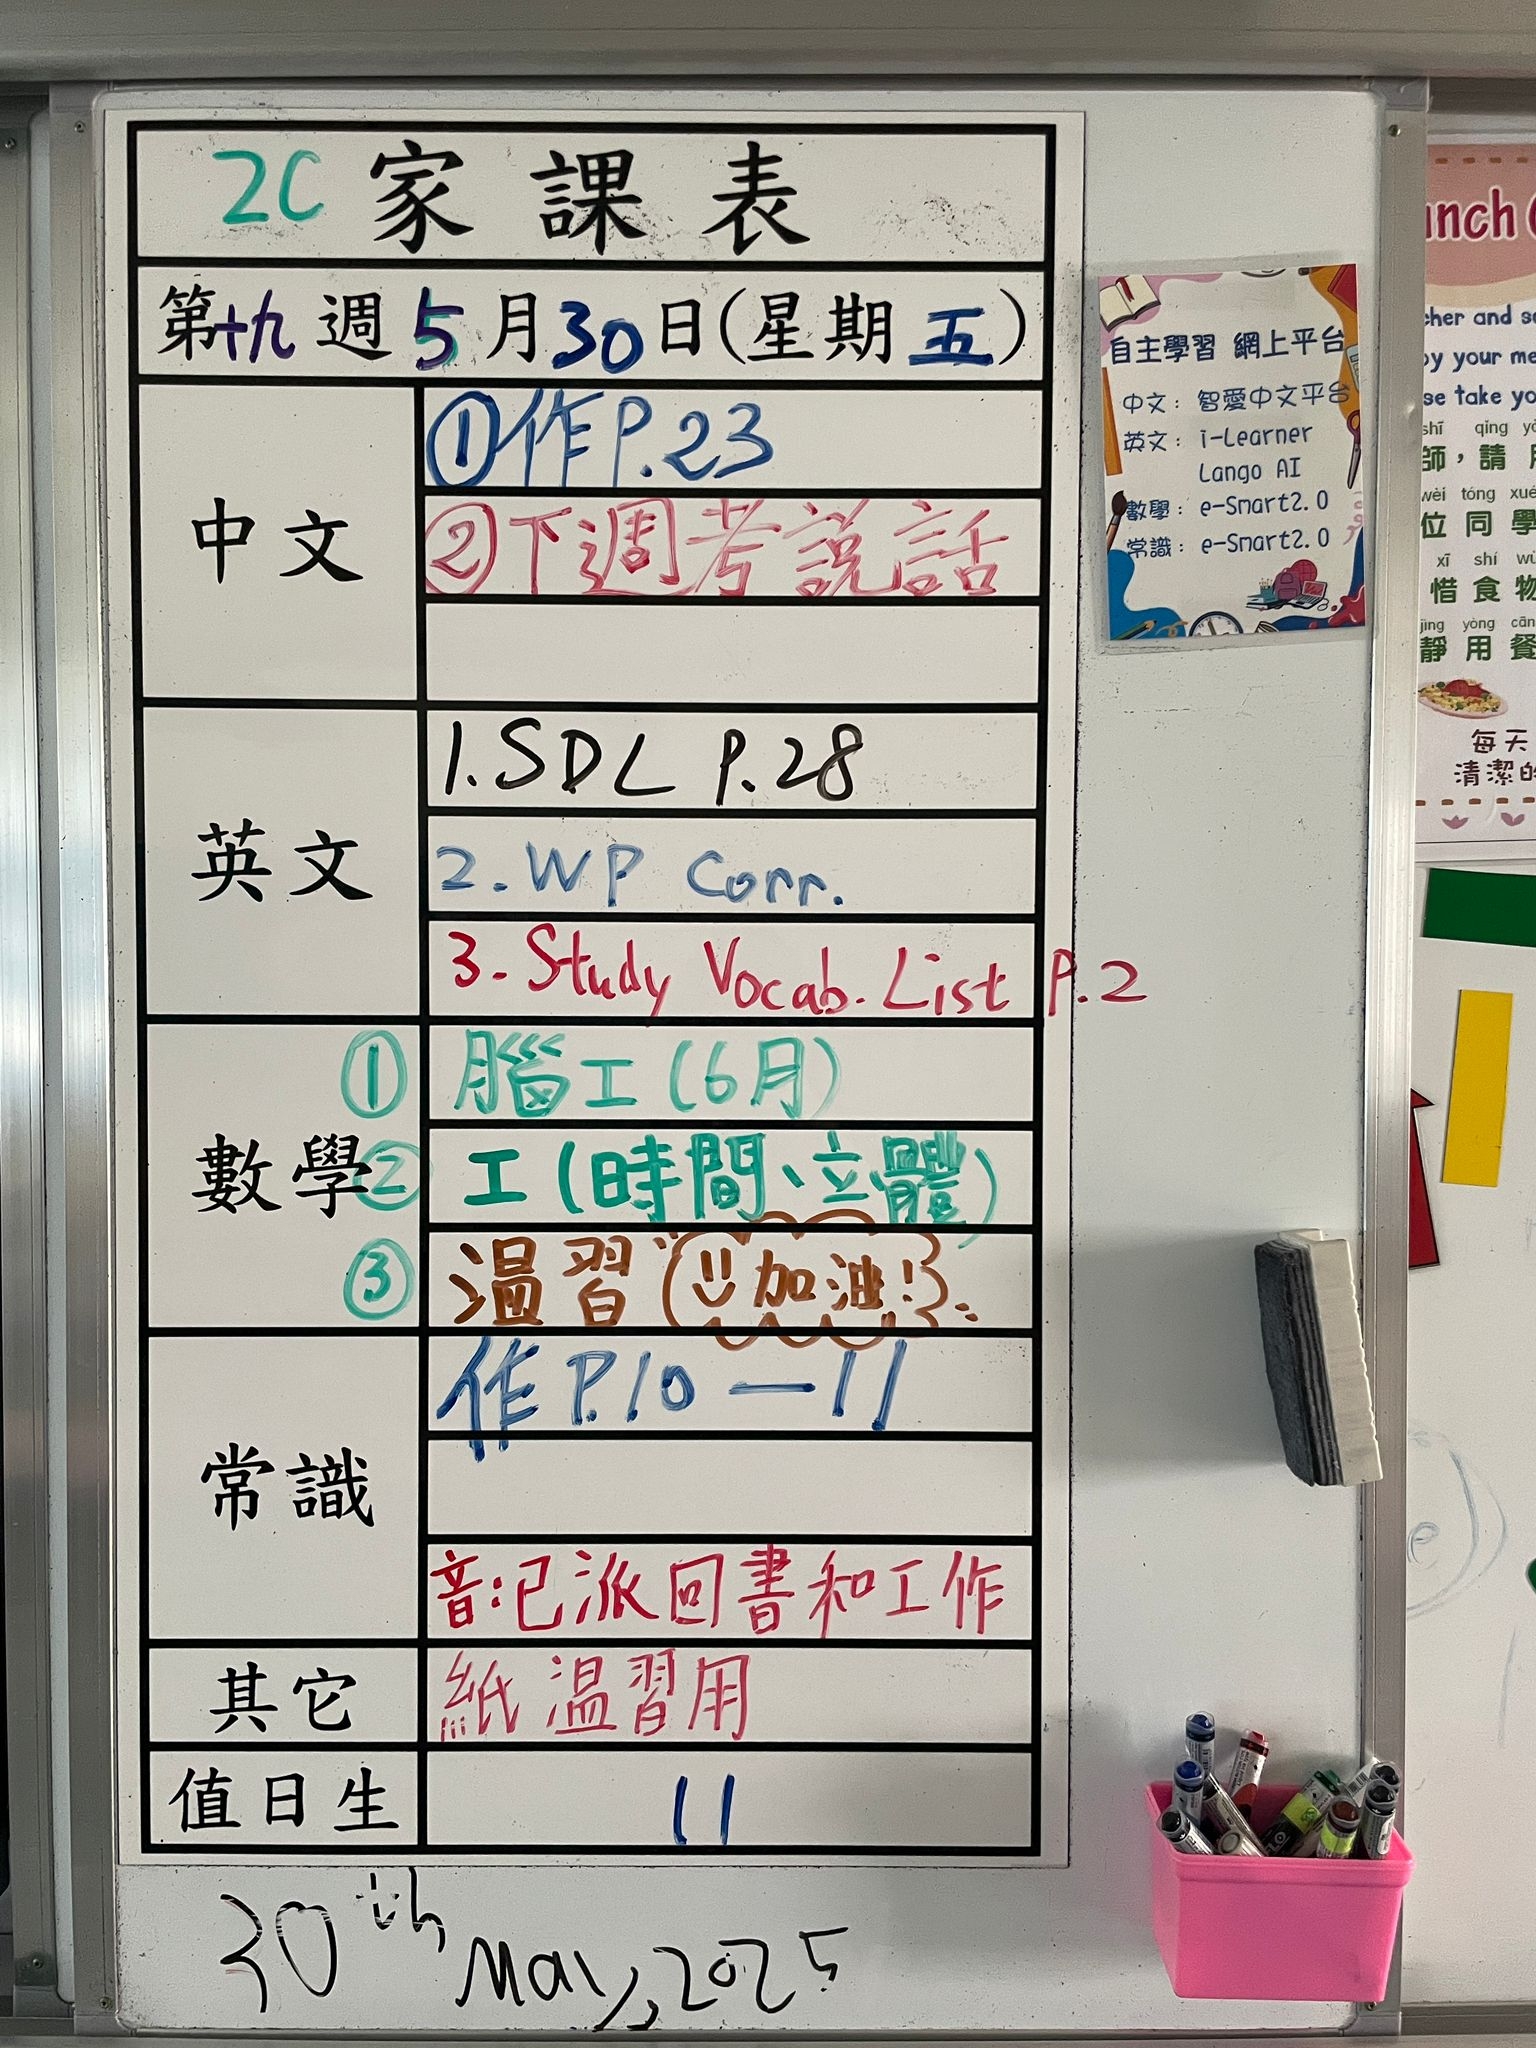 2C 家課表
第十九週5月30日(星期五)
中文
①作P.23
②下週考說話
英文
1.SDL P.28
2.WP Corr.
3.Study Vocab.List P.2
數學
① 腦工(6月)
② 工(時間、立體)
③ 溫習 加油!
常識
作P.10—11
音:已派回書和工作
其它
紙溫習用
值日生
11
30th May,2025
自主學習 網上平台
中文：智愛中文平台
英文：i-Learner
Lango AI
數學：e-Smart2.0
常識：e-Smart2.0
shī qǐng
師，請
wèi tóng xué
位同學
xī shí wù
惜食物
jìng yòng cān
靜用餐
每天
清潔的